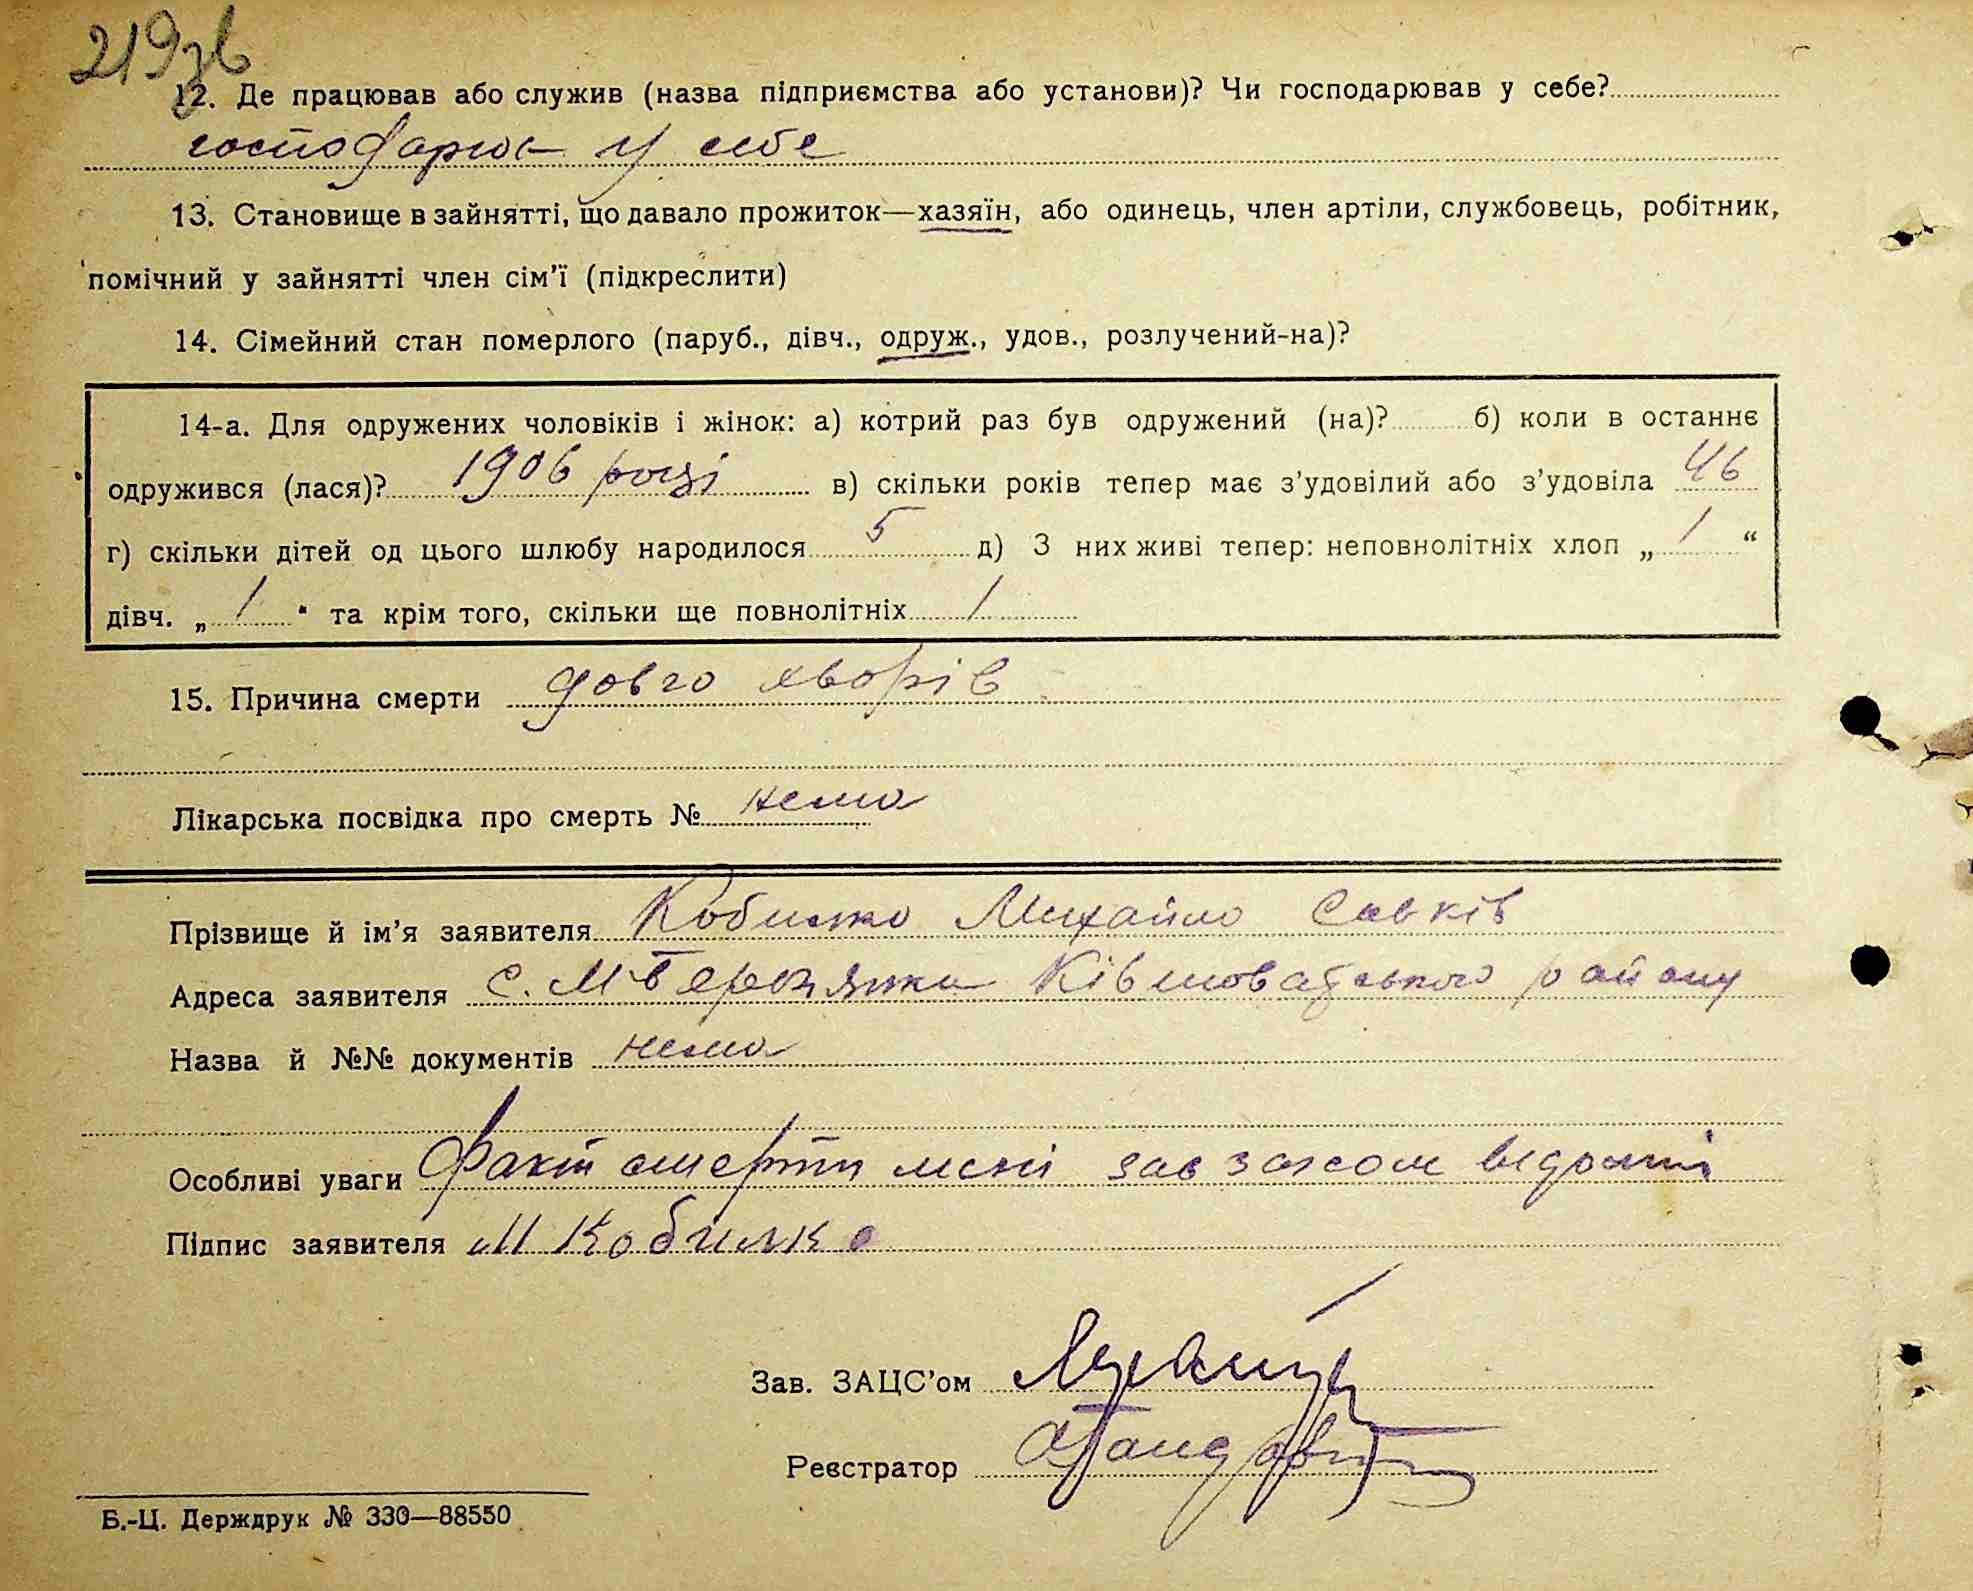 219зв
12. Де працював або служив (назва підприємства або установи)? Чи господарював у себе?
господарює у себе
13. Становище в зайнятті, що давало прожиток—хазяїн, або одинець, член артіли, службовець, робітник,
помічний у зайнятті член сім'ї (підкреслити)
14. Сімейний стан померлого (паруб., дівч., одруж., удов., розлучений-на)?
14-а. Для одружених чоловіків і жінок: а) котрий раз був одружений (на)? б) коли в останнє
одружився (лася)? 1906 році в) скільки років тепер має з'удовілий або з'удовіла 46
г) скільки дітей од цього шлюбу народилося 5 д) З них живі тепер: неповнолітніх хлоп „ 1 “
дівч. „ 1 “ та крім того, скільки ще повнолітніх 1
15. Причина смерти довго хворів
Лікарська посвідка про смерть № нема
Прізвище й ім'я заявителя Кобилко Михайло Савків
Адреса заявителя с. району
Назва й №№ документів нема
Особливі уваги Факт смерти мені зав загсом відомі
Підпис заявителя М Кобилко
Зав. ЗАЦС'ом
Реєстратор
Б.-Ц. Держдрук № 330—88550